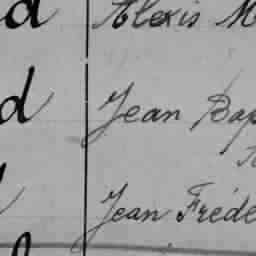 d Alexis M
d Jean Bap
Jean Fréde